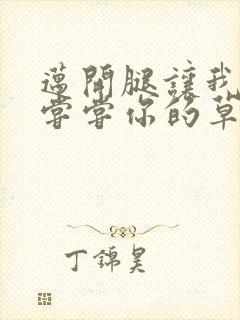 邁開腿讓我
嘗嘗你的草
丁錦昊